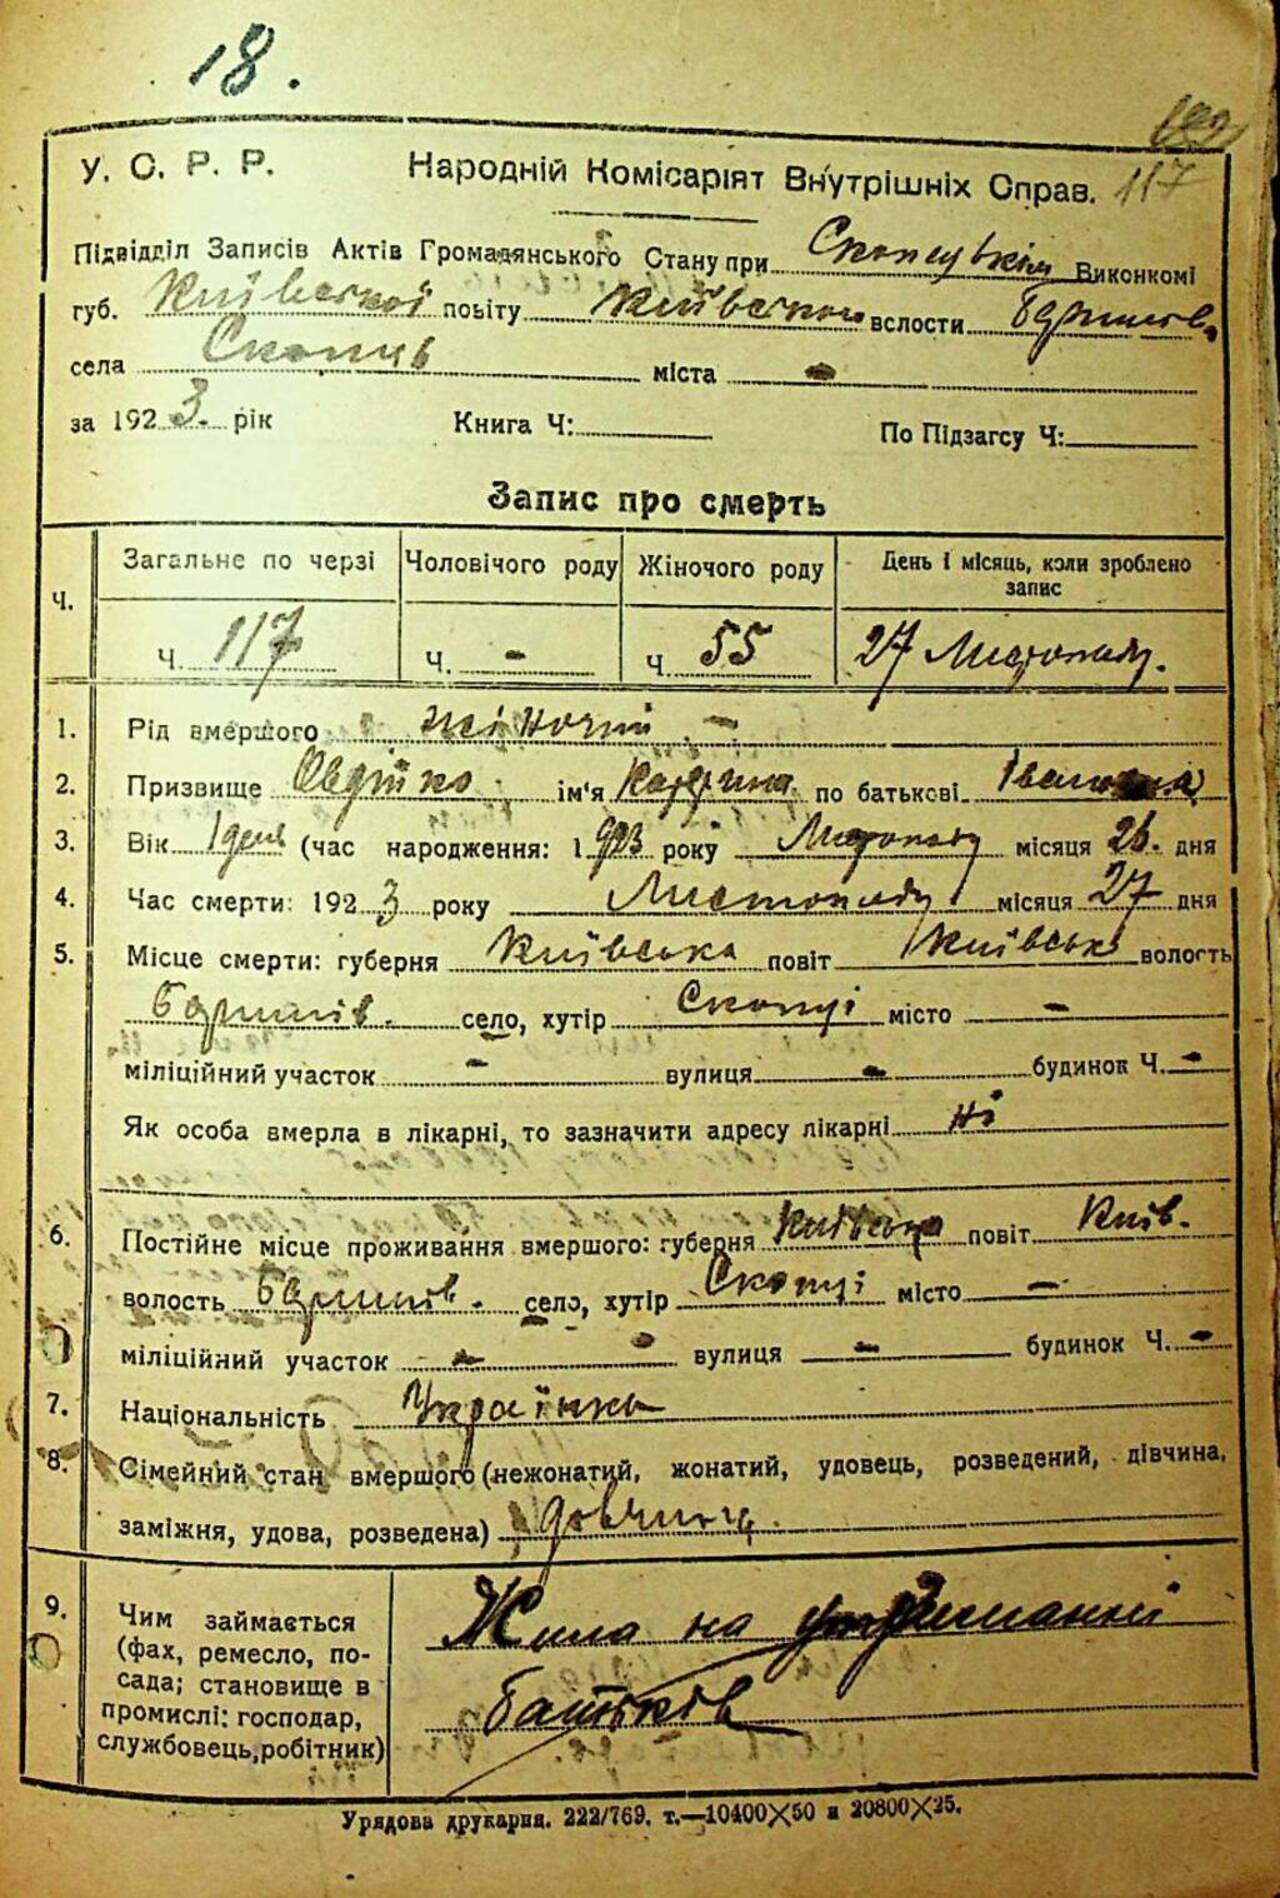 18.
117
У. С. Р. Р. Народній Комісаріят Внутрішніх Справ.
Підвідділ Записів Актів Громадянського Стану при Скопецькім Виконкомі
губ. Київської повіту Київського волости Баришів.
села Скопців міста -
за 1923. рік Книга Ч: По Підзагсу Ч:
Запис про смерть
Ч. Загальне по черзі Чоловічого роду Жіночого роду День і місяць, коли зроблено запис
Ч. 117 Ч. - Ч 55 27 Листопаду.
1. Рід вмершого жіночий -
2. Призвище Овдійко ім'я Катерина по батькові Іванівна
3. Вік 1 день (час народження: 1923 року Листопаду місяця 26. дня
4. Час смерти: 1923 року Листопаду місяця 27 дня
5. Місце смерти: губерня Київська повіт Київськ волость
Баришів. село, хутір Скопці місто -
міліційний участок - вулиця - будинок Ч. -
Як особа вмерла в лікарні, то зазначити адресу лікарні Ні
6. Постійне місце проживання вмершого: губерня Київська повіт Київ.
волость Баришів. село, хутір Скопці місто -
міліційний участок - вулиця - будинок Ч. -
7. Національність Українка
8. Сімейний стан вмершого (нежонатий, жонатий, удовець, розведений, дівчина,
заміжня, удова, розведена) дівчина.
9. Чим займається
(фах, ремесло, по-
сада; становище в
промислі: господар,
службовець, робітник)
Жила на утриманні
батьків
Урядова друкарня. 222/769. т.—10400×50 и 20800×25.